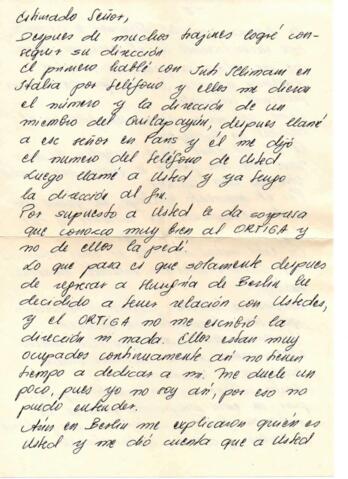 Estimado Señor,
Despues de muchos trajines logré con-
seguir su dirección
El primero hablé con Inti Illimani en
Italia por teléfono y ellos me dieron
el número y la dirección de un
miembro del Quilapayún, despues llamé
a ese señor en Paris y él me dijó
el numero del teléfono de Usted.
Luego llamé a Usted y ya tengo
la dirección al fin.
Por supuesto a Usted le da sorpresa
que conozco muy bien al ORTIGA y
no de ellos la pedí.
Lo que pasa es que solamente despues
de regresar a Hungría de Berlin he
decidido a tener relación con Ustedes,
y el ORTIGA no me escribió la
dirección ni nada. Ellos estan muy
ocupados continuamente así no tienen
tiempo a dedicar a mi. Me duele un
poco, pues yo no soy así, por eso no
puedo entender.
Aún en Berlin me explicaron quién es
Usted y me dió cuenta que a Usted